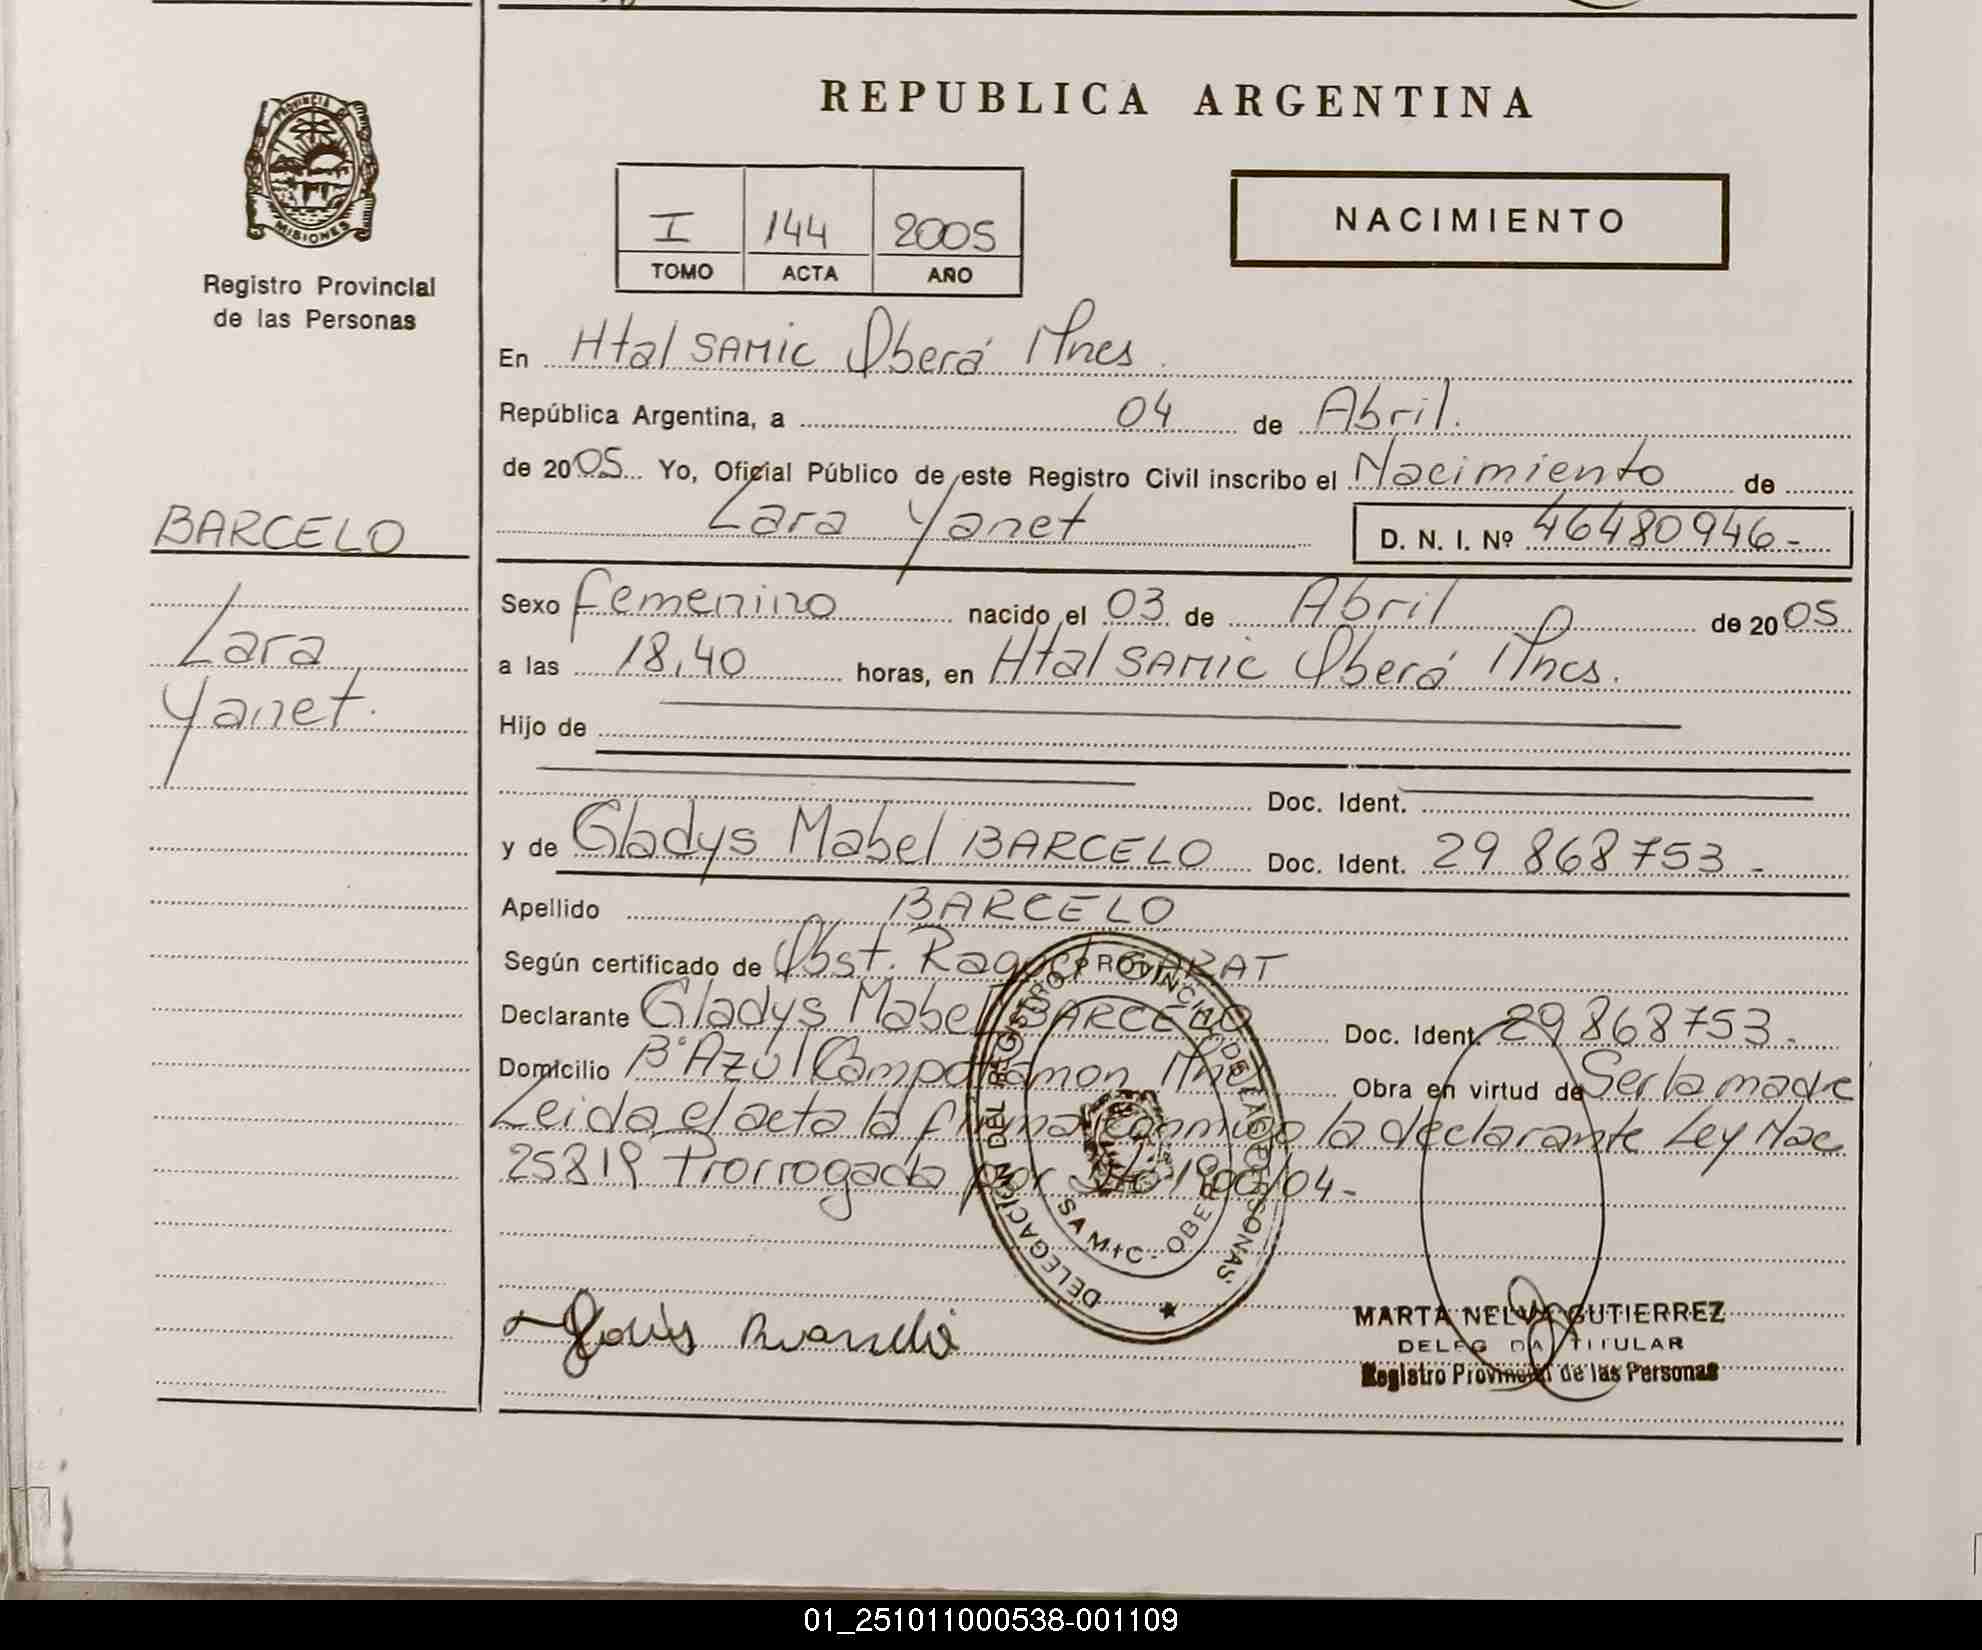 REPUBLICA ARGENTINA
PROVINCIA DE
MISIONES
Registro Provincial
de las Personas
I 144 2005
TOMO ACTA AÑO
NACIMIENTO
En Htal SAMIC Oberá Mnes.
República Argentina, a 04 de Abril.
de 2005 Yo, Oficial Público de este Registro Civil inscribo el Nacimiento de
Lara Yanet D. N. I. Nº 46480946-
BARCELO
Lara
Yanet.
Sexo femenino nacido el 03 de Abril de 2005
a las 18,40 horas, en Htal SAMIC Oberá Mnes.
Hijo de
Doc. Ident.
y de Gladys Mabel BARCELO Doc. Ident. 29 868 753-
Apellido BARCELO
Según certificado de Obst. Raquel GARAT
Declarante Gladys Mabel BARCELO Doc. Ident. 29 868 753-
Domicilio Bº Azul Campo Ramon Mnes Obra en virtud de Ser la madre
Leida el acta la firma conmigo la declarante Ley Nac
25819 Prorrogada por 1900/04-
DELEGACION DEL REGISTRO PROVINCIAL DE LAS PERSONAS
SAMIC - OBERA
MARTA NELVA GUTIERREZ
DELEGADA TITULAR
Registro Provincial de las Personas
01_251011000538-001109